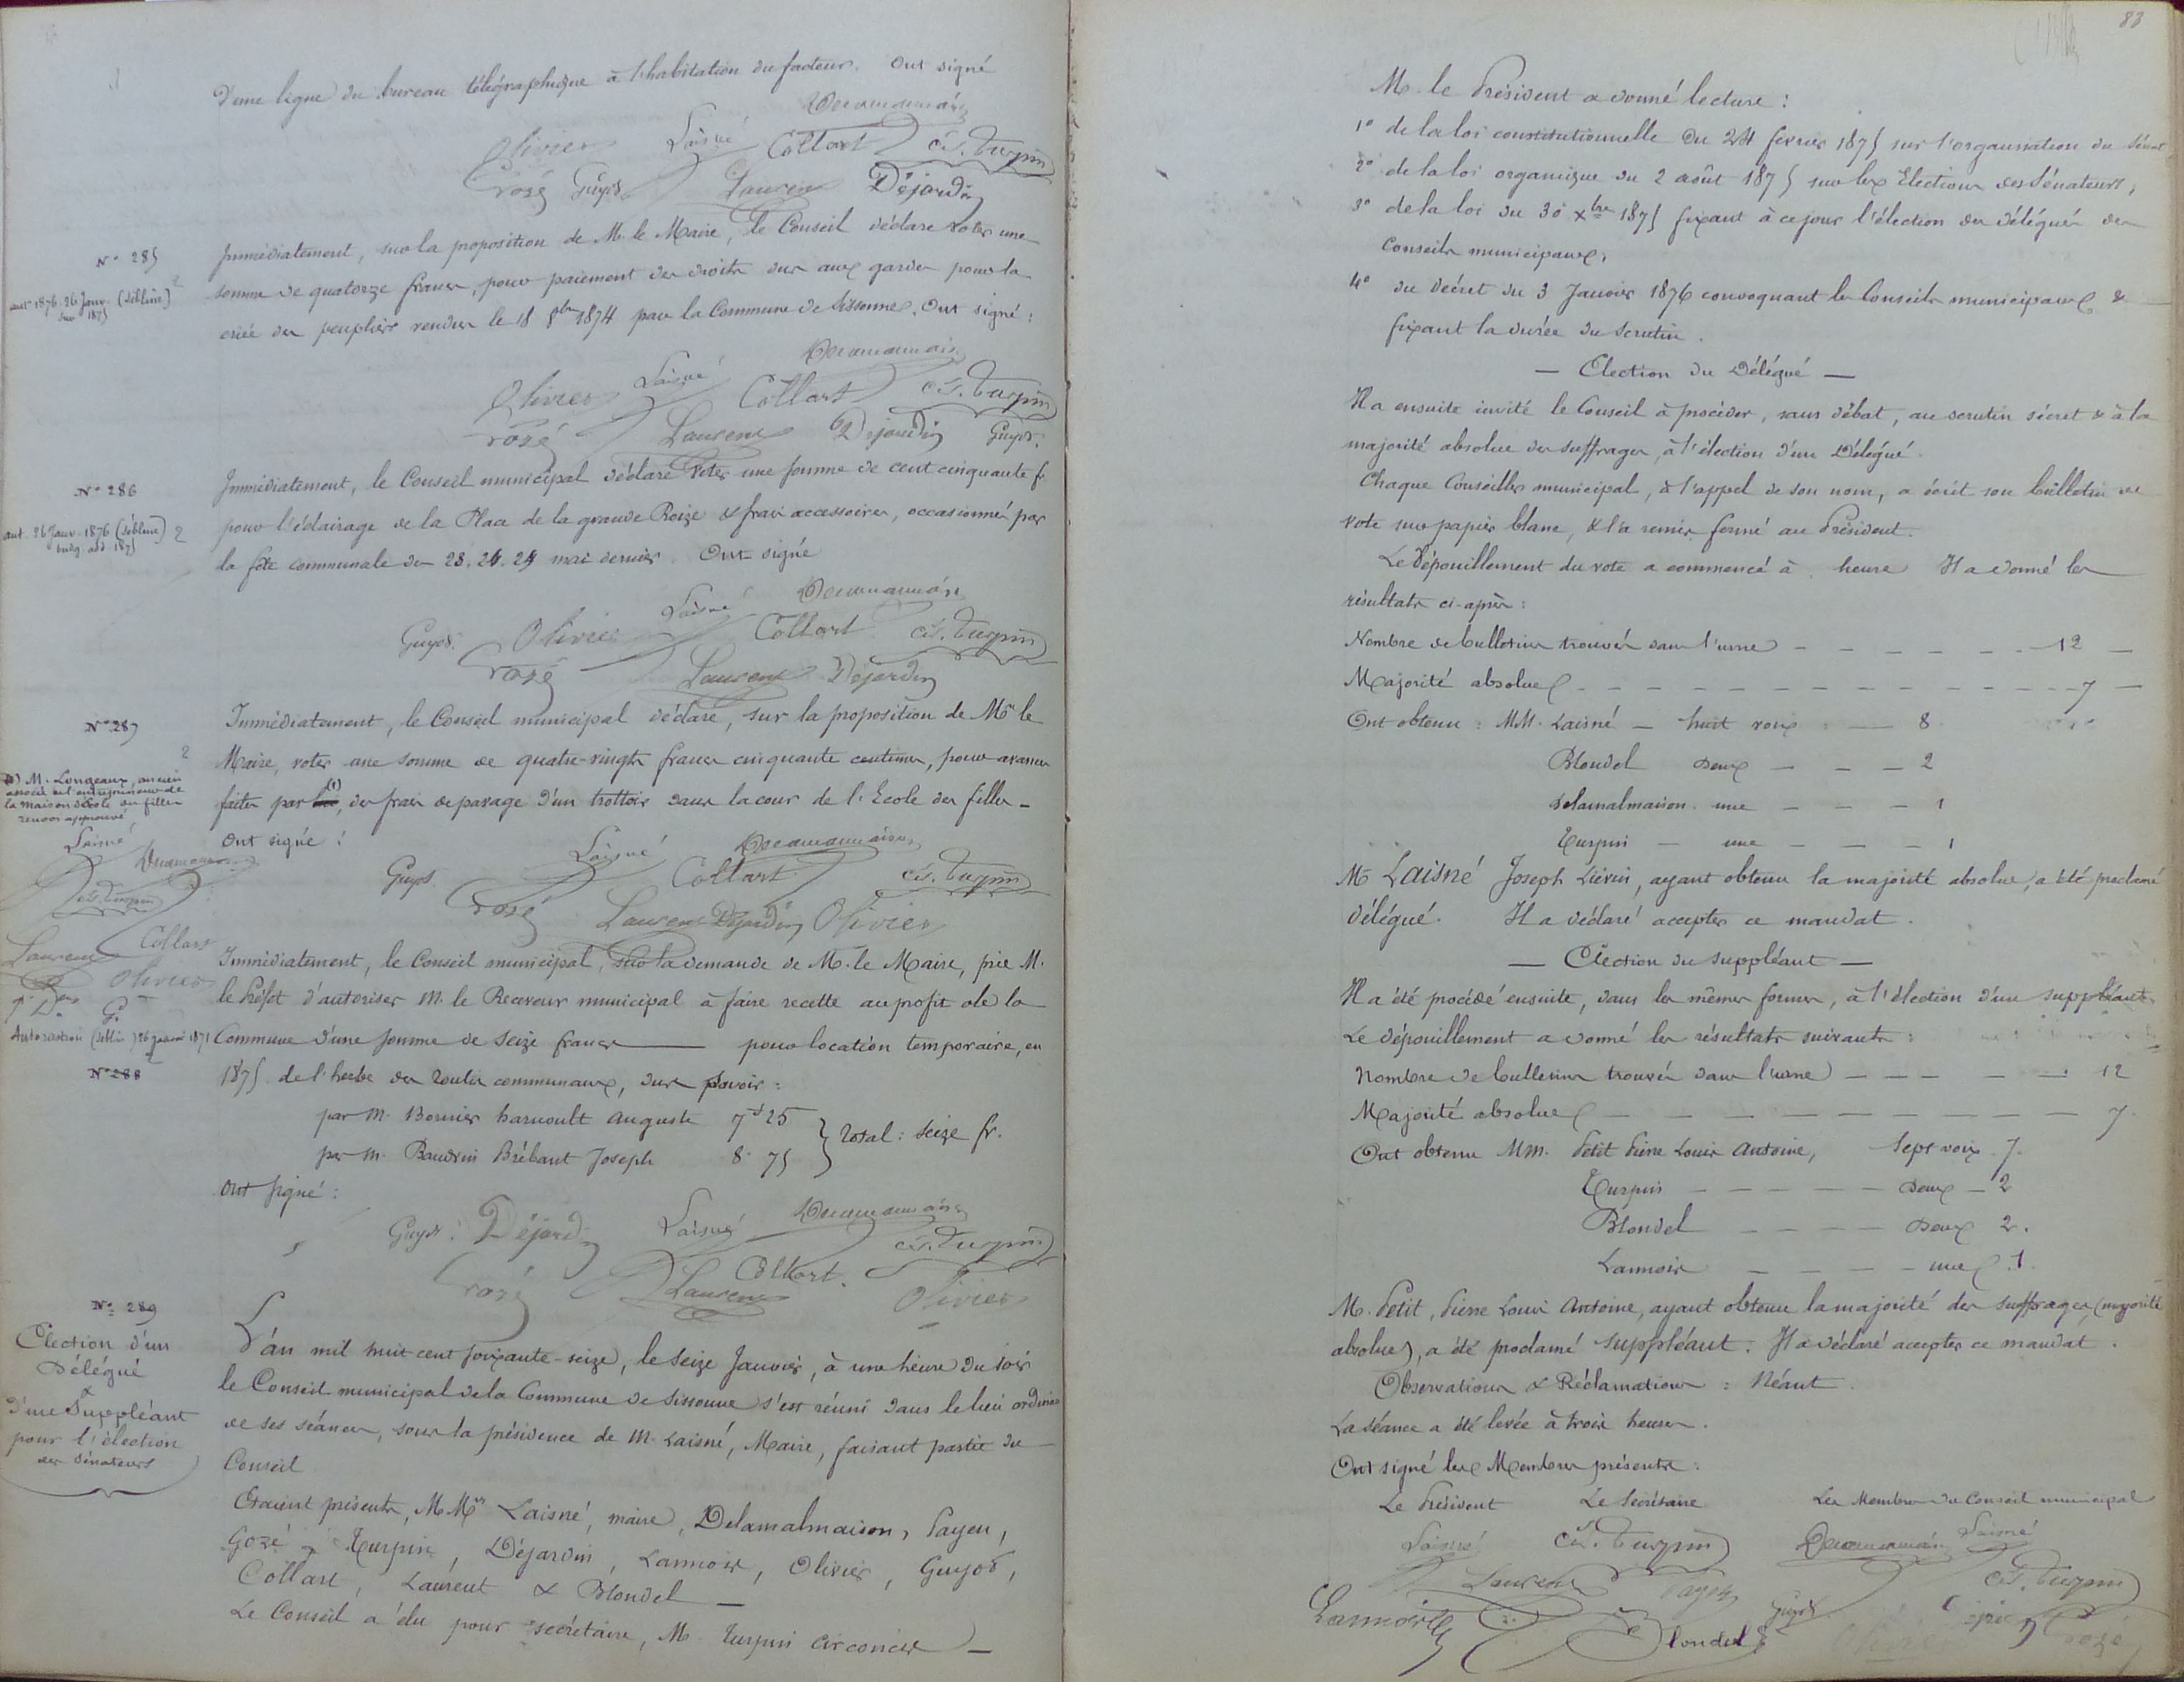 d'une ligne du bureau télégraphique à l'habitation du facteur. Ont signé
Delamalmaison
Olivier Laisné Collart Cés. Turpin
Gozé Guyot Laurent Déjardin
N° 285
aut. 1876. 26 Janv. (Sébline)
sur 1875
Immédiatement, sur la proposition de M. le Maire, le Conseil déclare voter une
somme de quatorze francs, pour paiement des droits dus aux gardes pour la
criée des peupliers vendus le 18 8bre 1874 par la Commune de Sissonne. Ont signé :
Delamalmaison
Olivier Laisné Collart Cés. Turpin
Gozé Laurent Déjardin Guyot
N° 286
aut. 26 Janv. 1876 (Sébline)
budg. add. 1875
Immédiatement, le Conseil municipal déclare voter une somme de cent cinquante f.
pour l'éclairage de la Place de la grande Roize & frais accessoires, occasionnés par
la fête communale des 23. 24. 25 mai dernier. Ont signé
Delamalmaison
Guyot Olivier Laisné Collart Cés. Turpin
Gozé Laurent Déjardin
N° 287
(1) M. Longeaux, ancien
associé et entrepreneur de
la maison d'école des filles
renvoi approuvé
Laisné
Delamalmaison
Cés. Turpin
Collart
Laurent
Olivier
D. G.
Immédiatement, le Conseil municipal déclare, sur la proposition de Mr le
Maire, voter une somme de quatre-vingts francs cinquante centimes, pour avances
faites par lui (1), des frais de pavage d'un trottoir dans la cour de l'École des filles -
Ont signé :
Delamalmaison
Guyot Laisné Collart Cés. Turpin
Gozé Laurent Déjardin Olivier
Autorisation (Sébline) 26 janvier 1871
N° 288
Immédiatement, le Conseil municipal, sur la demande de M. le Maire, prie M.
le Préfet d'autoriser M. le Receveur municipal à faire recette au profit de la
Commune d'une somme de seize francs — pour location temporaire, en
1875 de l'herbe des routes communaux, dus savoir :
par M. Bonnier harnoult Auguste 7f 25
par M. Baudrin Brébant Joseph 8. 75
Total : Seize fr.
Ont signé :
Guyot Déjardin Laisné Delamalmaison
Cés. Turpin
Gozé Laurent Collart Olivier
N° 289
Election d'un
Délégué
&
d'un Suppléant
pour l'élection
des Sénateurs
L'an mil huit cent soixante-seize, le seize Janvier, à une heure du soir
le Conseil municipal de la Commune de Sissonne s'est réuni dans le lieu ordinaire
de ses séances, sous la présidence de M. Laisné, Maire, faisant partie du
Conseil
Etaient présents, M. Mrs Laisné, maire, Delamalmaison, Payen,
Gozé, Turpin, Déjardin, Lannois, Olivier, Guyot,
Collart, Laurent & Blondel —
Le Conseil a élu pour secrétaire, M. Turpin Circoncis —
83
M. le Président a donné lecture :
1° de la loi constitutionnelle du 24 février 1875 sur l'organisation du Sénat
2° de la loi organique du 2 août 1875 sur les Elections des Sénateurs,
3° de la loi du 30 Xbre 1875 fixant à ce jour l'élection des délégués des
Conseils municipaux,
4° du décret du 3 Janvier 1876 convoquant les Conseils municipaux &
fixant la durée du scrutin.
— Election du Délégué —
Il a ensuite invité le Conseil à procéder, sans débat, au scrutin sécret & à la
majorité absolue des suffrages, à l'élection d'un Délégué.
Chaque Conseiller municipal, à l'appel de son nom, a écrit son bulletin de
vote sur papier blanc, & l'a remis fermé au Président.
Le dépouillement du vote a commencé à heure Il a donné les
résultats ci-après :
Nombre de bulletins trouvés dans l'urne — 12 —
Majorité absolue — 7 —
Ont obtenu : MM. Laisné — huit voix — 8
Blondel deux — 2
Delamalmaison une — 1
Turpin — une — 1
M. Laisné Joseph Liévin, ayant obtenu la majorité absolue, a été proclamé
délégué. Il a déclaré accepter ce mandat.
— Election du suppléant —
Il a été procédé ensuite, dans les mêmes formes, à l'élection d'un suppléant
Le dépouillement a donné les résultats suivants :
Nombre de bulletins trouvés dans l'urne — 12
Majorité absolue — 7.
Ont obtenu MM. Petit Pierre Louis Antoine, Sept voix 7.
Turpin — deux — 2
Blondel — deux 2.
Lannois — une 1.
M. Petit, Pierre Louis Antoine, ayant obtenu la majorité des suffrages, (majorité
absolue), a été proclamé suppléant. Il a déclaré accepter ce mandat.
Observations & Réclamations : Néant.
La séance a été levée à trois heures.
Ont signé les Membres présents :
Le Président Le Secrétaire Les Membres du Conseil municipal
Laisné Cés. Turpin Delamalmaison Laisné
Laurent Payen Cés. Turpin
Lannois Blondel Guyot Gozé